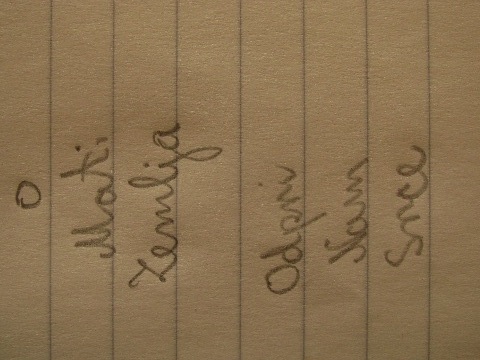 O
Mati
Zemlja
Odpri
Nam
Srce